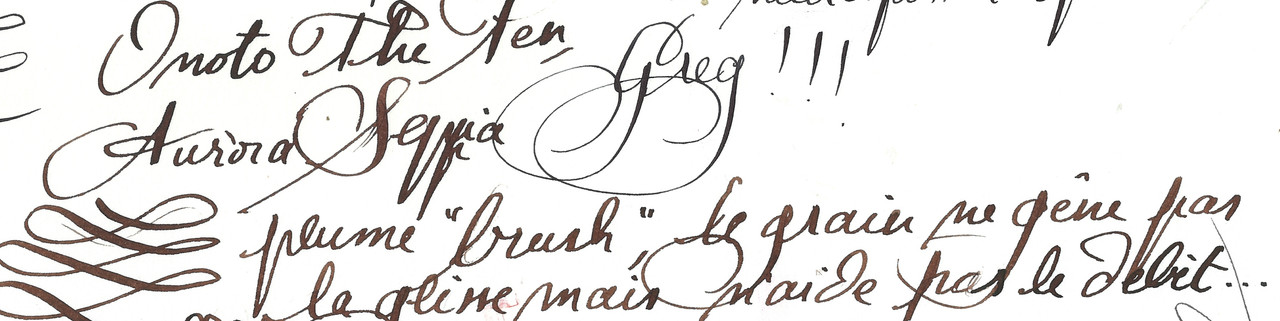 Onoto The Pen
Greg !!!
Aurora Seppia
plume "brush", le grain ne gêne pas
la glisse mais n'aide pas le débit...